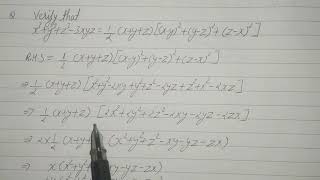 Q Verify that
x³+y³+z³-3xyz = 1/2 (x+y+z)[(x-y)²+(y-z)²+(z-x)²]
RHS = 1/2 (x+y+z)[(x-y)²+(y-z)²+(z-x)²]
⇒ 1/2 (x+y+z)[x²+y²-2xy+y²+z²-2yz+z²+x²-2xz]
⇒ 1/2 (x+y+z) [2x²+2y²+2z²-2xy-2yz-2zx]
⇒ 2x1/2 (x+y+ (x²+y²+z²-xy-yz-zx)
⇒ x(x²+y² xy-yz-zx)